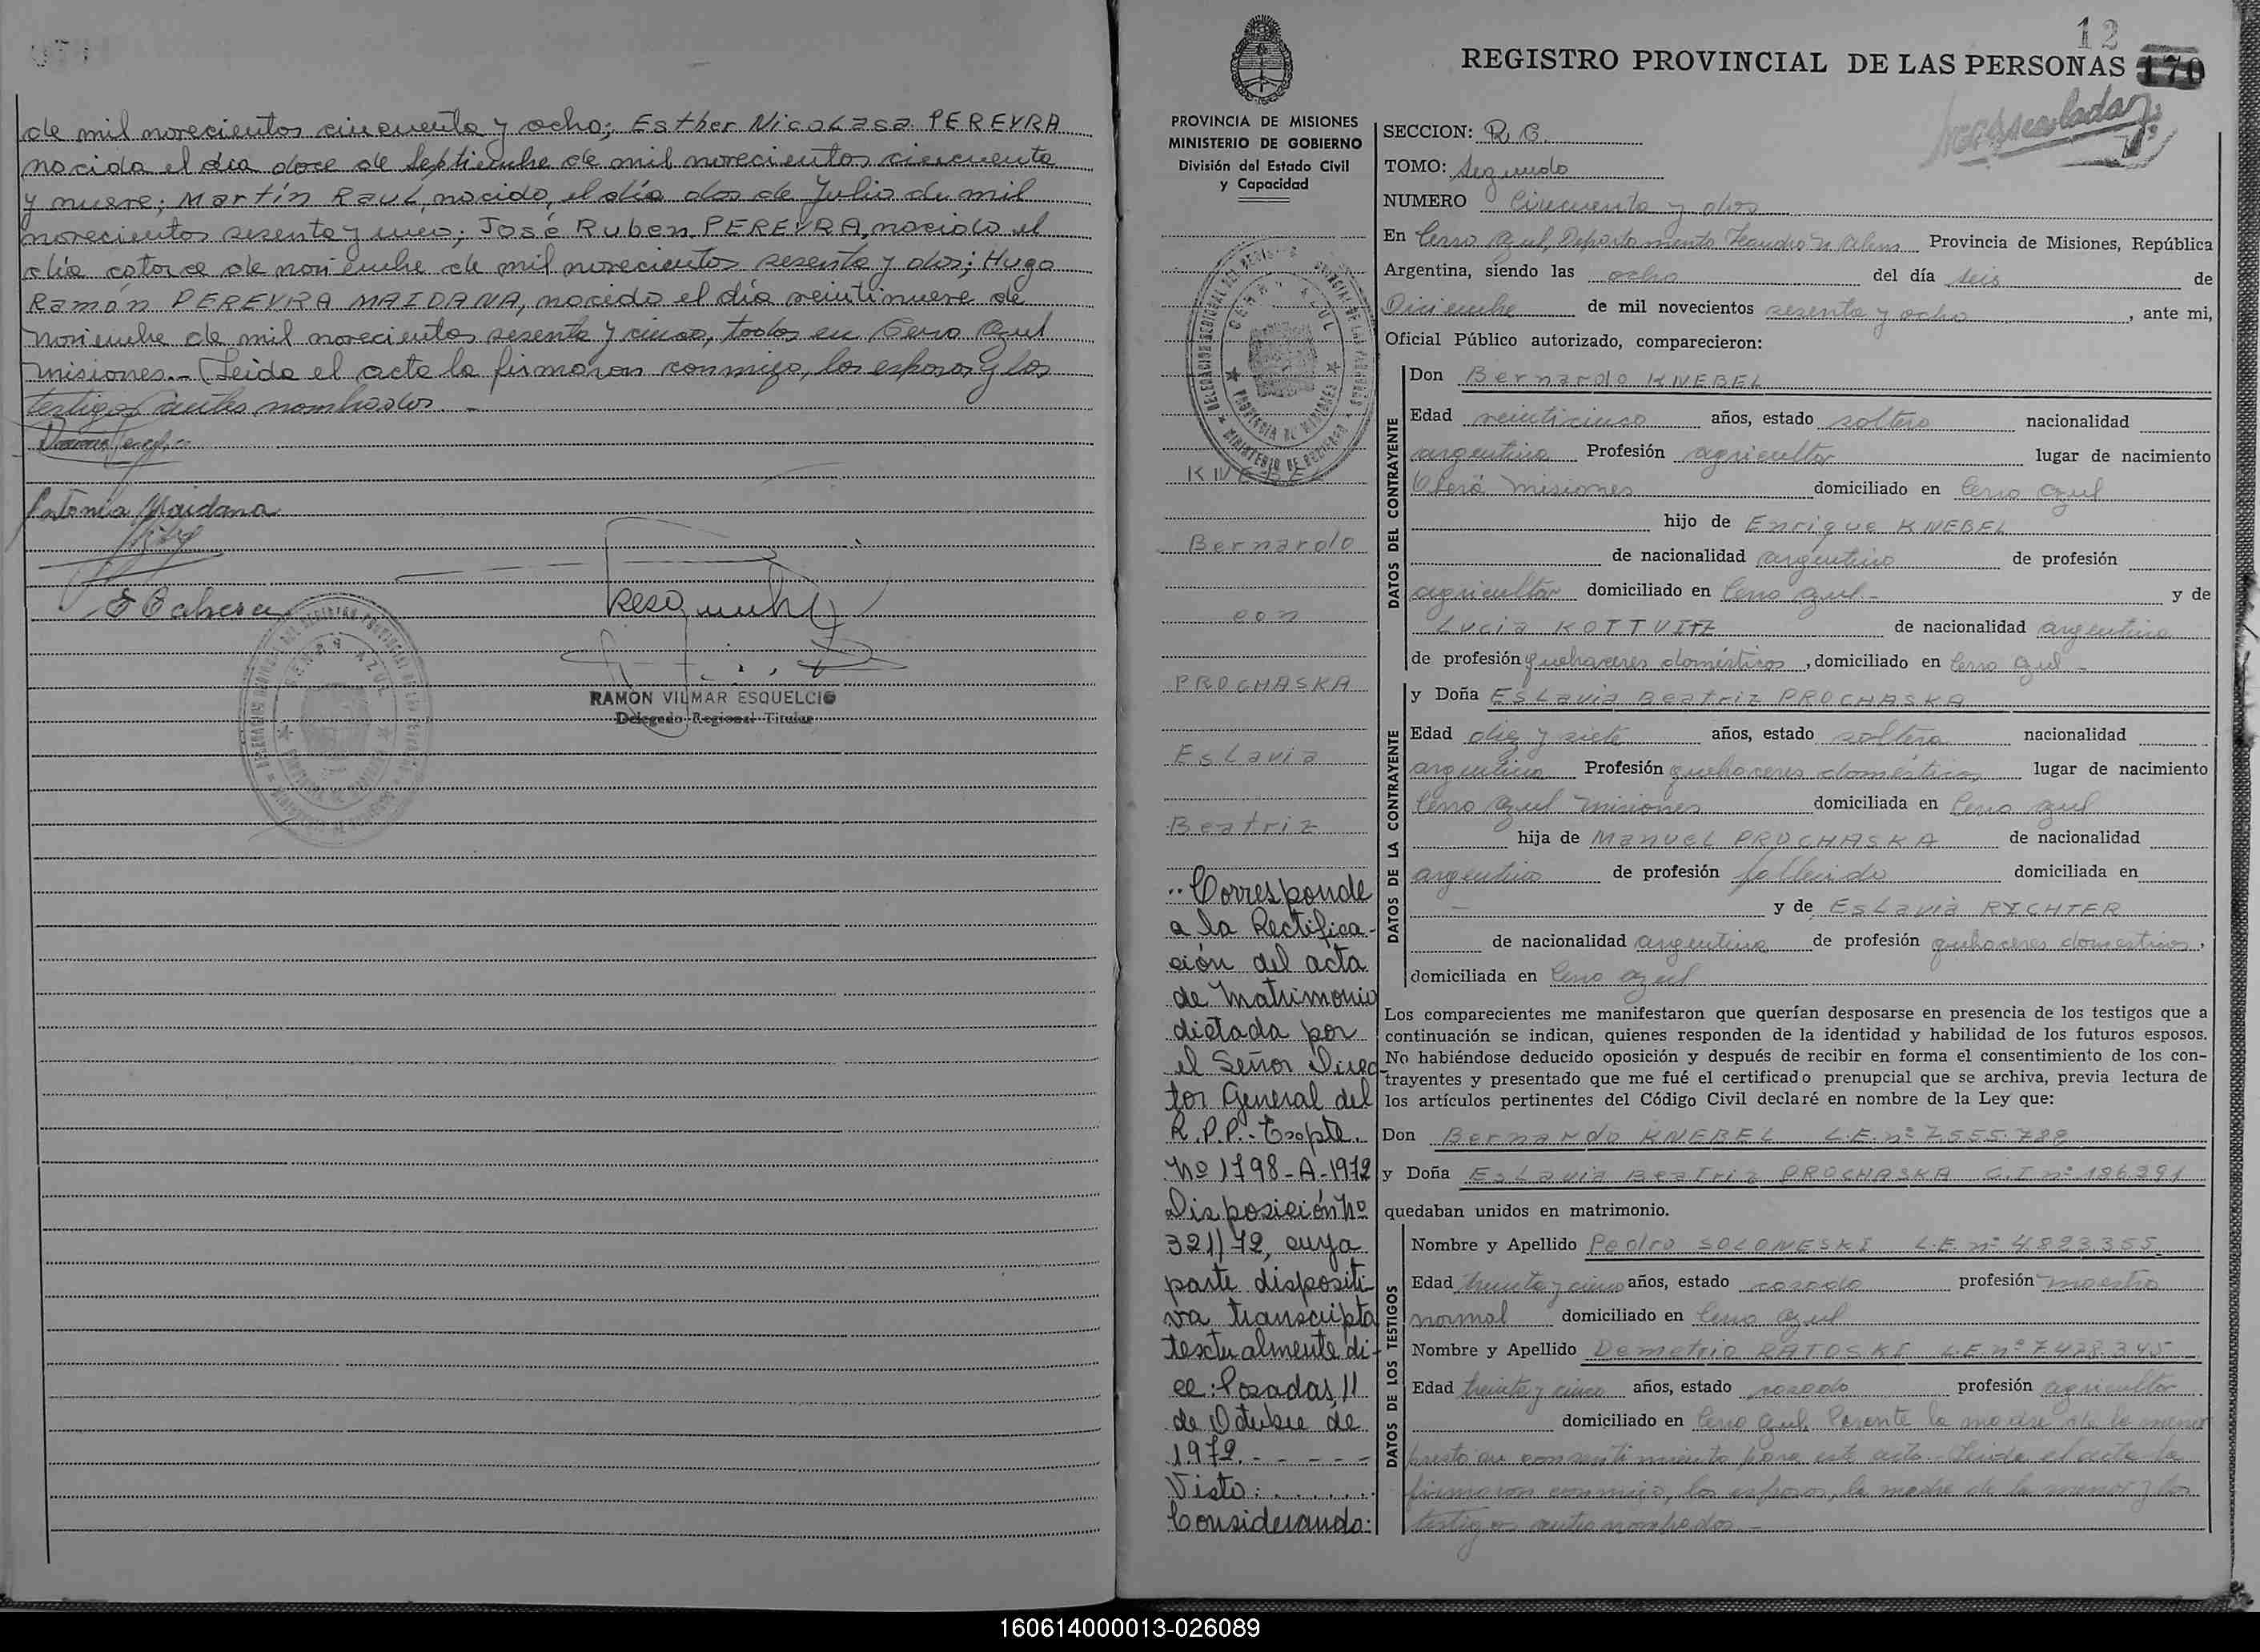 de mil novecientos cincuenta y ocho; Esther Nicolasa PEREYRA
nacida el día doce de Septiembre de mil novecientos cincuenta
y nueve; Martín Raúl, nacido, el día dos de Julio de mil
novecientos sesenta y uno; José Ruben PEREYRA, nacido el
día catorce de noviembre de mil novecientos sesenta y dos; Hugo
Ramón PEREYRA MAIDANA, nacido el día veintinueve de
noviembre de mil novecientos sesenta y cinco, todos en Cerro Azul
Misiones.- Leida el acta la firmaron conmigo, los esposos y los
testigos antes nombrados.-
Antonia Maidana
RAMON VILMAR ESQUELCIO
Delegado Regional Titular
12
REGISTRO PROVINCIAL DE LAS PERSONAS 170
PROVINCIA DE MISIONES
MINISTERIO DE GOBIERNO
División del Estado Civil
y Capacidad
KNEBEL
Bernardo
con
PROCHASKA
Eslavia
Beatriz
..Corresponde
a la Rectifica-
ción del acta
de Matrimonio
dictada por
el Señor Direc-
tor General del
R.P.P.- Expte.
Nº 1798-A-1972
Disposición Nº
321/72, cuya
parte dispositi-
va transcripta
textualmente di-
ce: Posadas, 11
de Octubre de
1972.- - - - -
Visto: . . . . . .
Considerando:
SECCION: R.C.
TOMO: Segundo
NUMERO Cincuenta y dos
En Cerro Azul, Departamento Leandro N. Alem Provincia de Misiones, República
Argentina, siendo las ocho del día seis de
Diciembre de mil novecientos sesenta y ocho, ante mi,
Oficial Público autorizado, comparecieron:
DATOS DEL CONTRAYENTE
Don Bernardo KNEBEL
Edad veinticinco años, estado soltero nacionalidad
argentina Profesión agricultor lugar de nacimiento
Oberá Misiones domiciliado en Cerro Azul
hijo de Enrique KNEBEL
de nacionalidad argentino de profesión
agricultor domiciliado en Cerro Azul.- y de
Lucia KOTTVITZ de nacionalidad argentina
de profesión quehaceres domésticos, domiciliado en Cerro Azul -
DATOS DE LA CONTRAYENTE
y Doña Eslavia Beatriz PROCHASKA
Edad diez y siete años, estado soltera nacionalidad
argentina Profesión quehaceres domésticos lugar de nacimiento
Cerro Azul Misiones domiciliada en Cerro Azul
hija de Manuel PROCHASKA de nacionalidad
argentino de profesión fallecido domiciliada en
- y de Eslavia RYCHTER
de nacionalidad argentina de profesión quehaceres domésticos,
domiciliada en Cerro Azul
Los comparecientes me manifestaron que querían desposarse en presencia de los testigos que a
continuación se indican, quienes responden de la identidad y habilidad de los futuros esposos.
No habiéndose deducido oposición y después de recibir en forma el consentimiento de los con-
trayentes y presentado que me fué el certificado prenupcial que se archiva, previa lectura de
los artículos pertinentes del Código Civil declaré en nombre de la Ley que:
Don Bernardo KNEBEL L.E. nº 7.555.789
y Doña Eslavia Beatriz PROCHASKA C.I nº 186391
quedaban unidos en matrimonio.
DATOS DE LOS TESTIGOS
Nombre y Apellido Pedro SOLONESKI L.E. nº 4823.355
Edad treinta y cinco años, estado casado profesión maestro
normal domiciliado en Cerro Azul
Nombre y Apellido Demetrio RATOSKI L.E. nº 7.428.345
Edad treinta y cinco años, estado casado profesión agricultor
domiciliado en Cerro Azul. Presente la madre de la menor
presta su consentimiento para este acto.- Leida el acta la
firmaron conmigo, los esposos, la madre de la menor y los
testigos antes nombrados.-
160614000013-026089